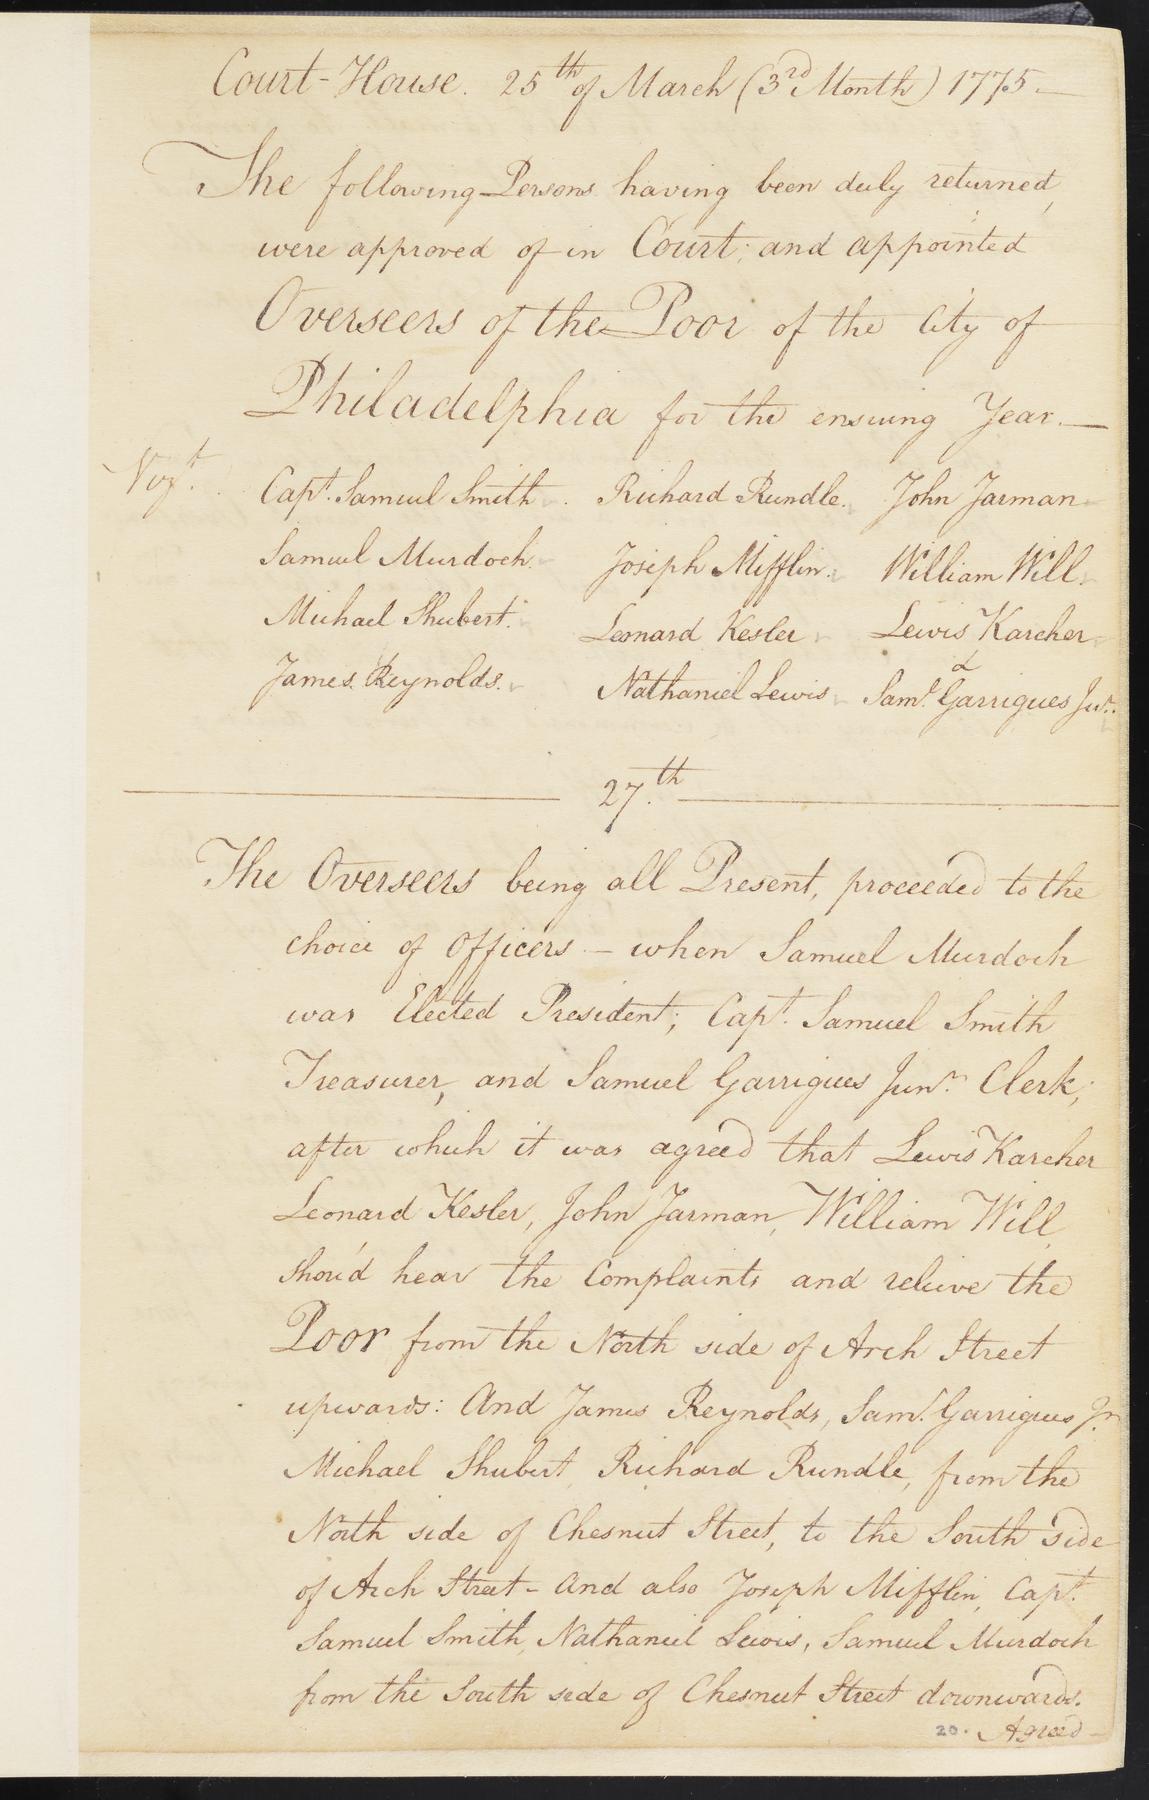 Court-House. 25th of March (3rd Month) 1775.—
The following Persons having been duly returned,
were approved of in Court; and appointed
Overseers of the Poor of the City of
Philadelphia for the ensuing Year.—
Vizt. Capt. Samuel Smith. Richard Rundle. John Jarman
Samuel Murdoch. Joseph Mifflin. William Will.
Michael Shubert. Leonard Kesler Lewis Karcher
&
James Reynolds. Nathaniel Lewis Saml. Garrigues Junr.
27.th
The Overseers being all Present, proceeded to the
choice of Officers — when Samuel Murdoch
was Elected President; Capt. Samuel Smith
Treasurer, and Samuel Garrigues Junr. Clerk;
after which it was agreed that Lewis Karcher
Leonard Kesler, John Jarman, William Will
shou'd hear the Complaints and relieve the
Poor from the North side of Arch Street
upwards: And James Reynolds, Saml. Garrigues Jr.
Michael Shubert, Richard Rundle, from the
North side of Chesnut Street, to the South side
of Arch Street - And also Joseph Mifflin, Capt.
Samuel Smith, Nathaniel Lewis, Samuel Murdoch
from the South side of Chesnut Street downwards.
20. Agreed